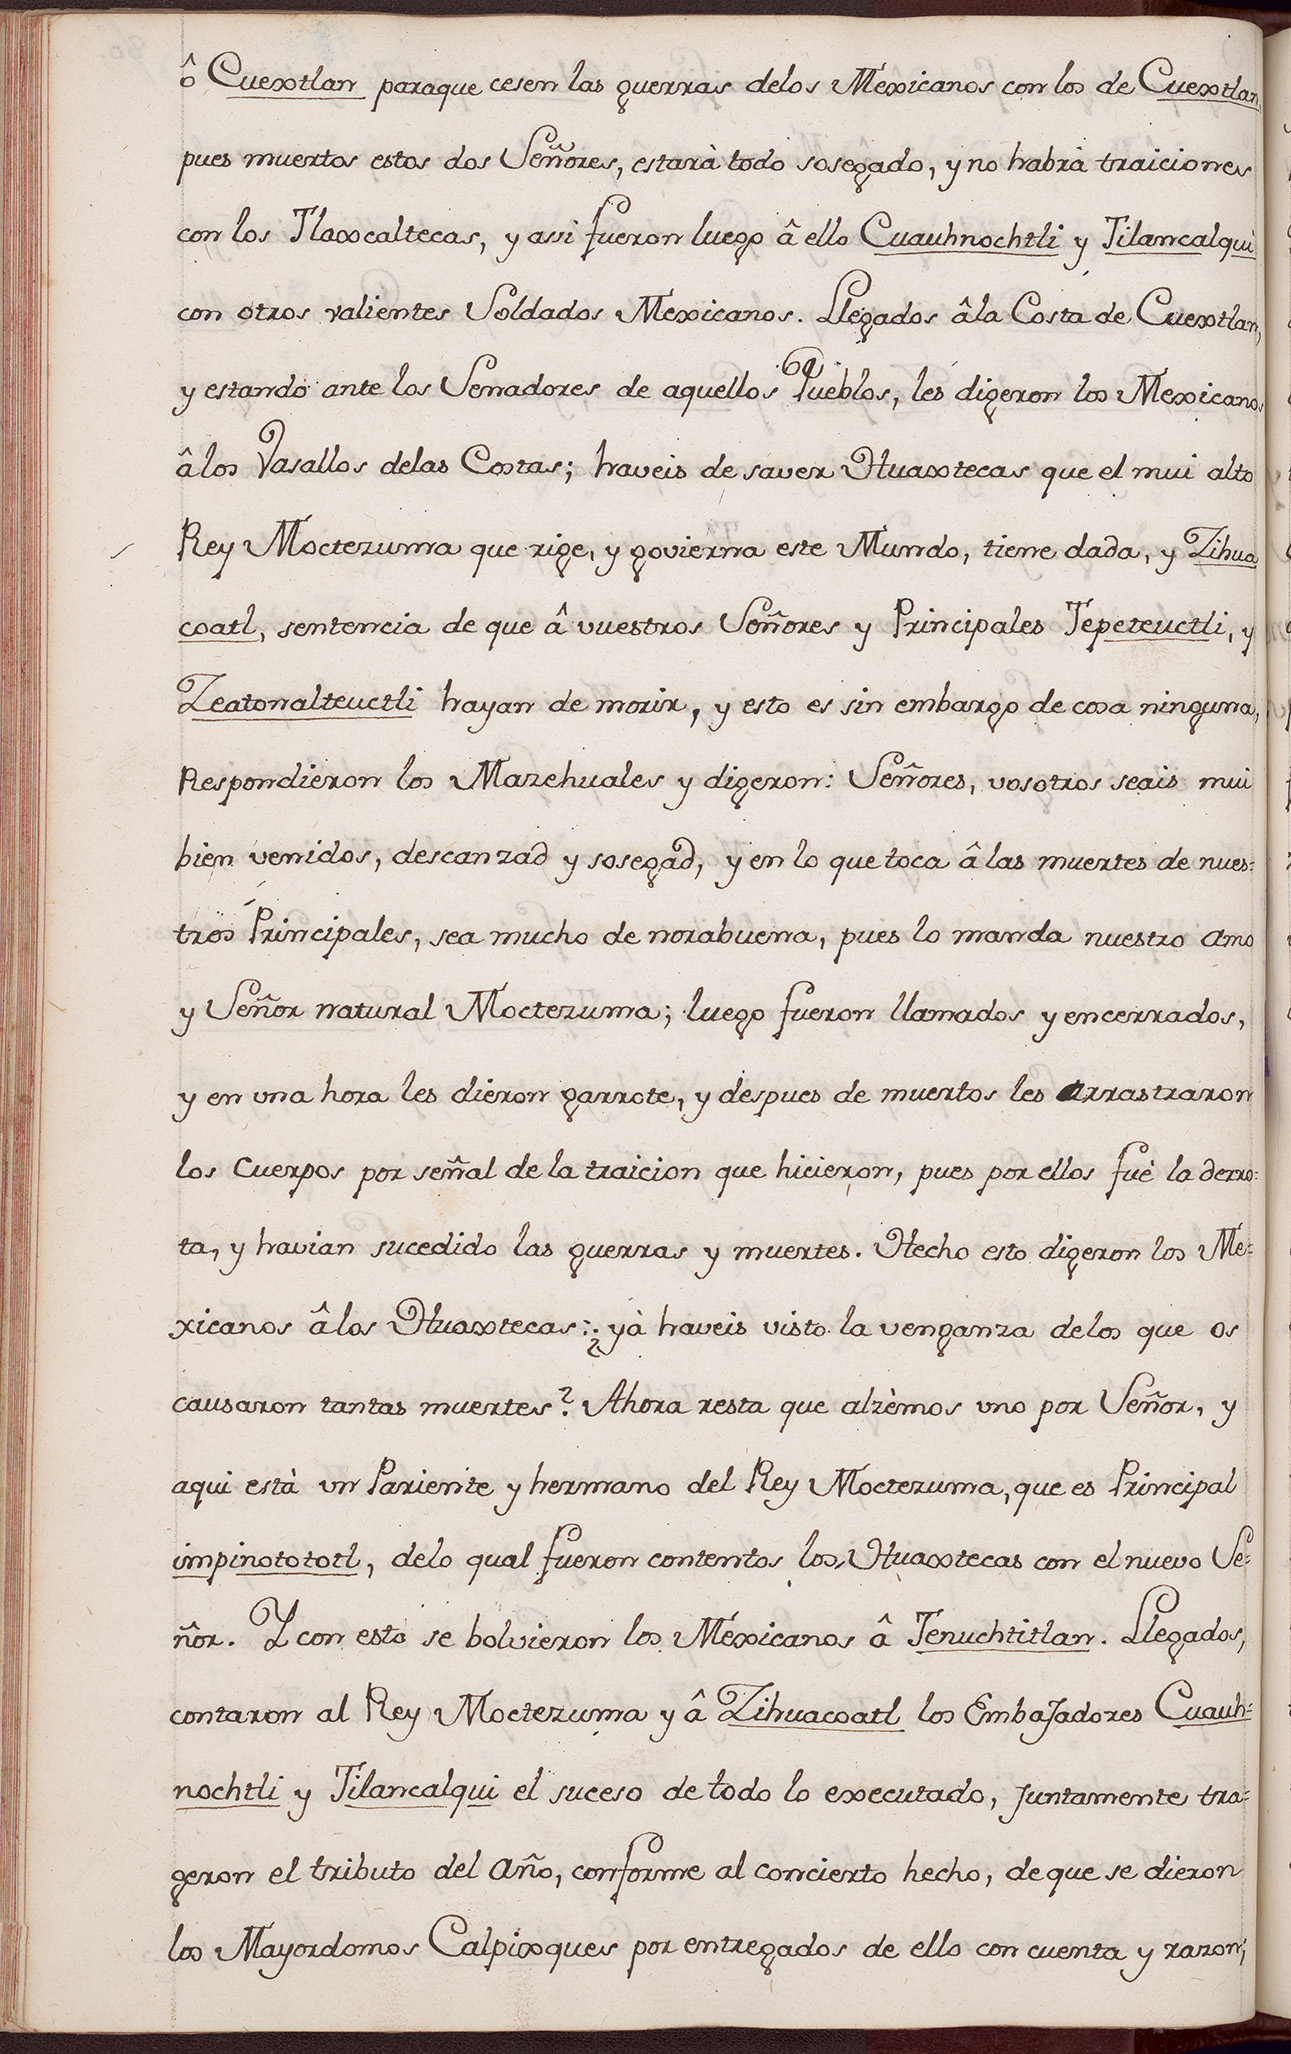 ô Cuextlan paraque cesen las guerras delos Mexicanos con los de Cuextlan,
pues muertos estos dos Señores, estarà todo sosegado, y no habrà traiciones
con los Tlaxcaltecas, y assi fueron luego â ello Cuauhnochtli y Tilancalqui
con otros valientes Soldados Mexicanos. Llegados âla Costa de Cuextlan,
y estando ante los Senadores de aquellos Pueblos, les digeron los Mexicanos
âlos Vasallos delas Costas; haveis de saver Huaxtecas que el mui alto
Rey Moctezuma que rige, y govierna este Mundo, tiene dada, y Zihua
coatl, sentencia de que â vuestros Señores y Principales Tepeteuctli, y
Zeatonalteuctli hayan de morir, y esto es sin embargo de cosa ninguna,
Respondieron los Mazehuales y digeron: Señores, vosotros seais mui
bien venidos, descanzad y sosegad, y en lo que toca â las muertes de nues=
tros Principales, sea mucho de norabuena, pues lo manda nuestro Amo
y Señor natural Moctezuma; luego fueron llamados y encerrados,
y en una hora les dieron garrote, y despues de muertos les Arrastraron
los Cuerpos por señal de la traicion que hicieron, pues por ellos fuè la derro=
ta, y havian sucedido las guerras y muertes. Hecho esto digeron los Me=
xicanos âlos Huaxtecas: ¿yà haveis visto la venganza delos que os
causaron tantas muertes? Ahora resta que alzèmos uno por Señor, y
aqui està un Pariente y hermano del Rey Moctezuma, que es Principal
impinotototl, delo qual fueron contentos los Huaxtecas con el nuevo Se=
ñor. Y con esto se bolvieron los Mexicanos â Tenuchtitlan. Llegados,
contaron al Rey Moctezuma y â Zihuacoatl los Embajadores Cuauh=
nochtli y Tilancalqui el suceso de todo lo executado, Juntamente tra=
geron el tributo del Año, conforme al concierto hecho, de que se dieron
los Mayordomos Calpixques por entregados de ello con cuenta y razon;